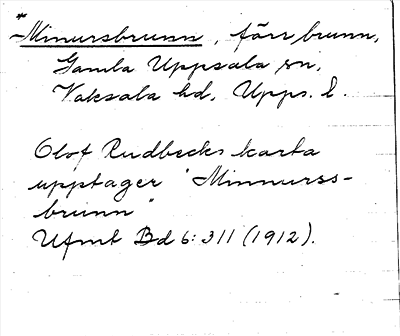 *Minursbrunn, förr brunn,
Gamla Uppsala sn,
Vaksala hd, Upps. l.
Olof Rudbecks karta
upptager "Minnurss-
brunn"
Ufmt Bd 6: 311 (1912).